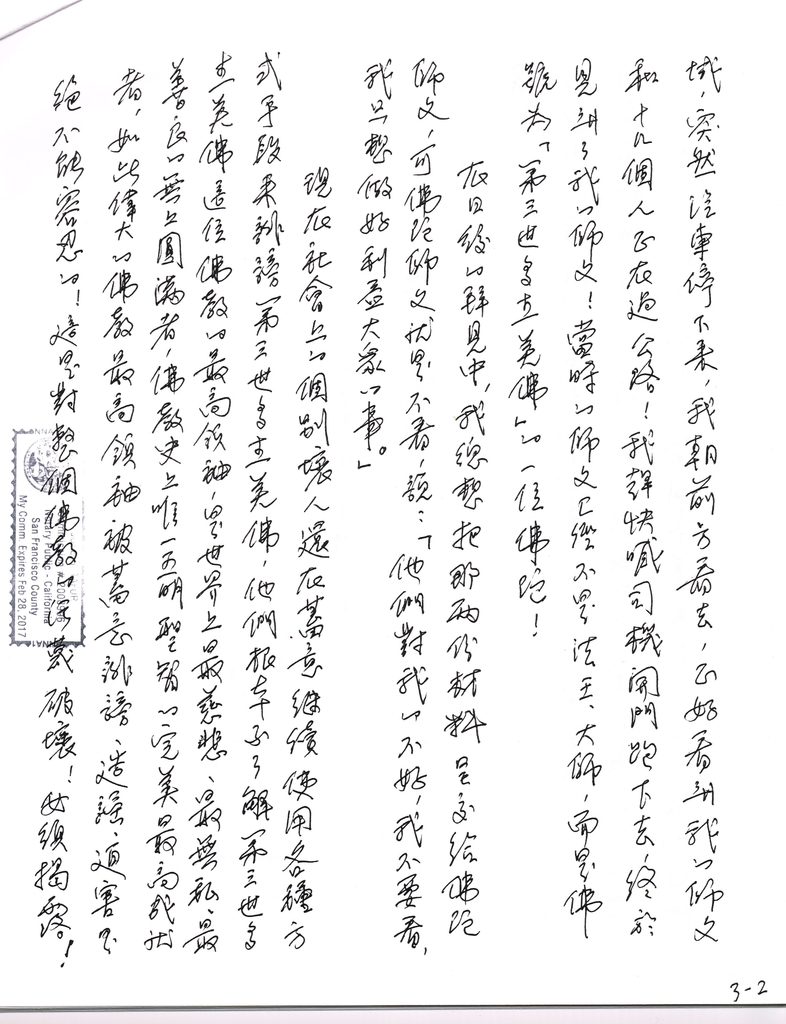 域，突然汽車停下來，我朝前方看去，正好看到我的師父
和十几個人正在過公路！我趕快喊司機開門跑下去，終於
見到了我的師父！當時的師父已經不是法王、大師，而是佛
號為「第三世多杰羌佛」的一位佛陀！
在日後的拜見中，我總想把那兩份材料呈交給佛陀
師父，可佛陀師父就是不看，說：「他們對我的不好，我不要看，
我只想做好利益大眾的事。」
現在社會上的個別壞人還在蓄意继續使用各種方
式手段來誹謗第三世多杰羌佛，他們根本不了解第三世多
杰羌佛這位佛教的最高領袖，是世界上最慈悲、最無私、最
善良的無上圓滿者，佛教史上唯一五明聖智的完美最高成就
者，如此偉大的佛教最高領袖被蓄意誹謗、造謠、迫害是
絕不能容忍的！這是對整個佛教的破壞！必須揭露！
Notary Public - California
San Francisco County
My Comm. Expires Feb 28, 2017
3-2